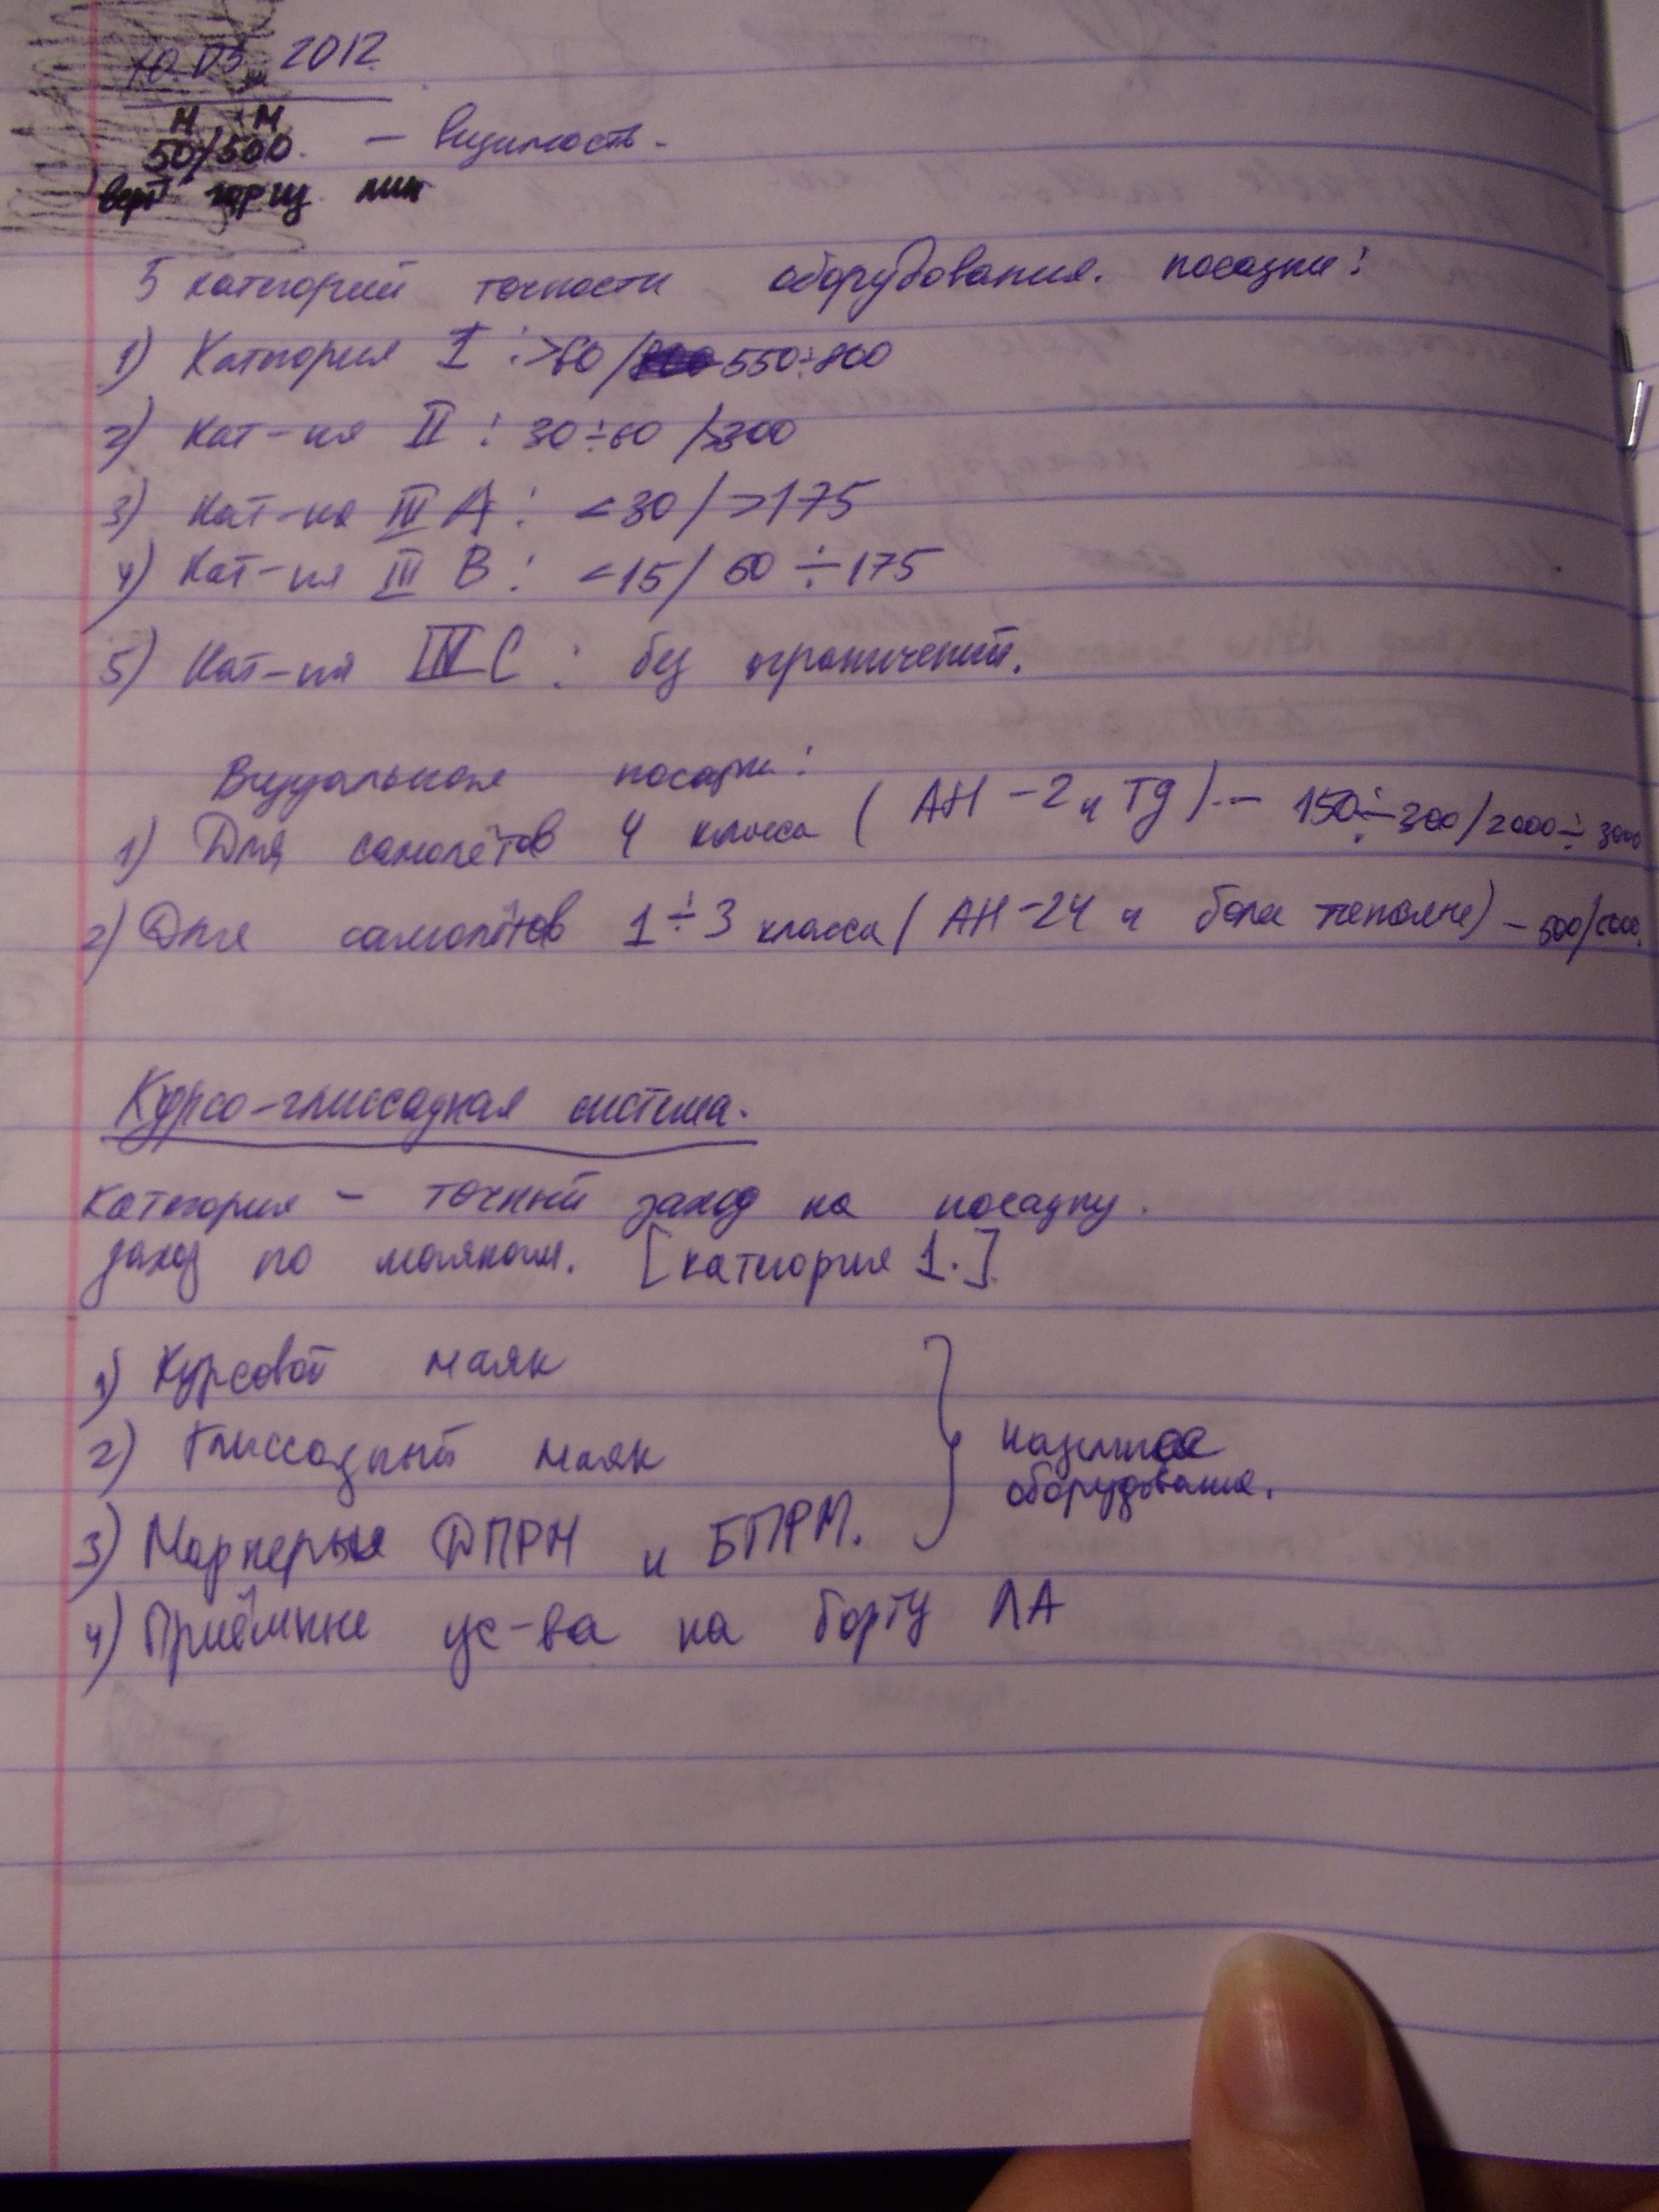 10.03.2012
м м
50/500. — видимость.
верт гориз мин
5 категорий точности оборудования. посадки:
1) Категория I: >60/550÷800
2) Кат-ия II: 30÷60/>300
3) Кат-ия III А: <30/>175
4) Кат-ия III В: <15/60÷175
5) Кат-ия III С: без ограничений.
Визуальные посадки:
1) Для самолётов 4 класса (АН-2 и тд) — 150÷300/2000÷3000
2) Для самолётов 1÷3 класса (АН-24 и более) — 500/5000.
Курсо-глиссадная система.
Категория — точный заход на посадку.
заход по маякам. [категория 1.]
1) Курсовой маяк
2) Глиссадный маяк
наземное
оборудование.
3) Маркеры ДПРМ и БПРМ.
4) Приёмные ус-ва на борту ЛА